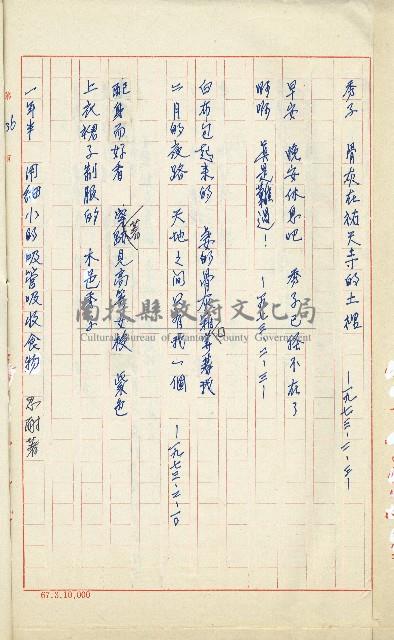 秀子 骨灰在祐天寺的土裡 一九七三、二、三一
早安 晚安休息吧 秀子已經不在了
啊啊 真是難過! 一九七三、二、三一
白布包起來的 妻的骨灰
二月的夜路 天地之間只有我一個 一九七三、二、二〇
配身而好看 穿著 見高等女校 紫色
上衣裙子制服的 木邑秀子
一年半 用細小的吸管吸收食物 忍耐著
第 36 頁
南投縣政府文化局
Cultural Bureau of Nantou County Government
67.3.10,000